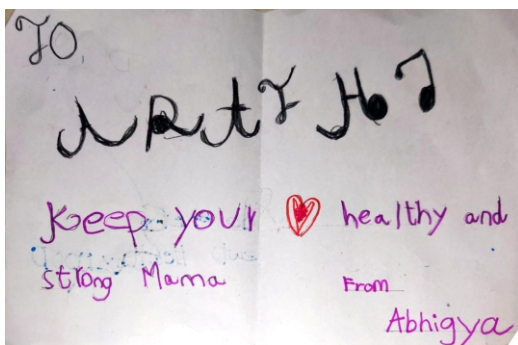 TO,
Keep your healthy and
strong Mama
From
Abhigya